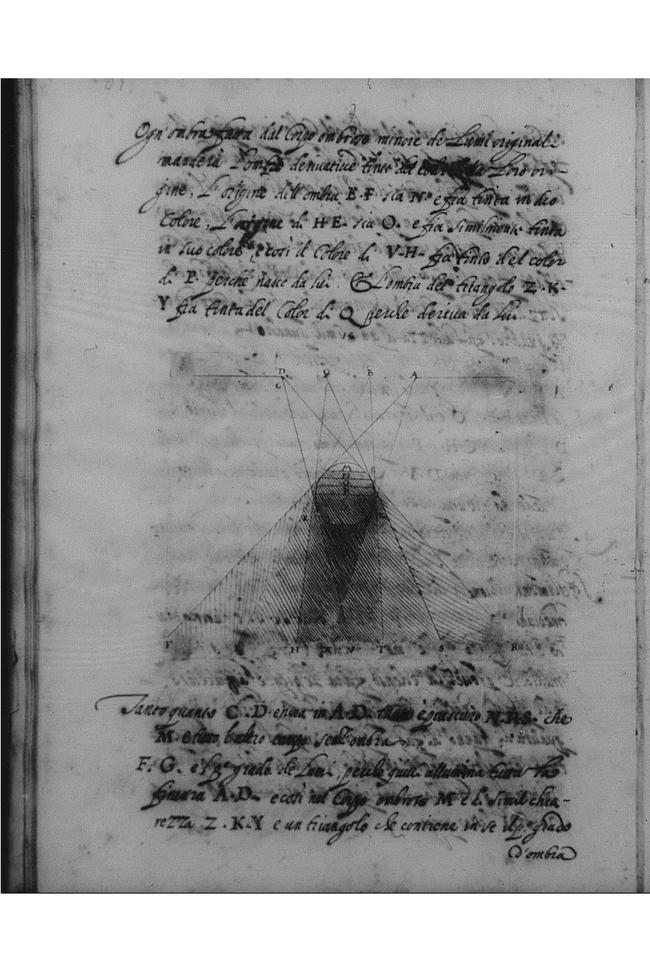 Ogn'ombra fatta dal Corpo ombroso minore de Lumi originali
manderà l'ombre derivative tinte del Loro ori-
gine, L'origine dell'ombra E·F sia N· e fia tinta in suo
Colore, L'origine di H·E· sia O· e fia similmente tinta
in suo colore, e così il Colore di V·H· fia tinto del color
di P· perche nasce da lui. E L'ombra del triangolo Z·K·
Y fia tinta del Color di Q perche deriva da lui
D Q B A
C
M
R
H N T S R
Tanto quanto C·D· entra in A·D· tanto è più scuro N·R·S· che
M· e senz'ombra
F·G· e il p.º grado de Lumi, perche quivi allumina tutta la
finestra A·D· e così nel Corpo ombroso M è di simil chia-
rezza Z·K·Y e un triangolo che contiene in se il p.º grado
d'ombra